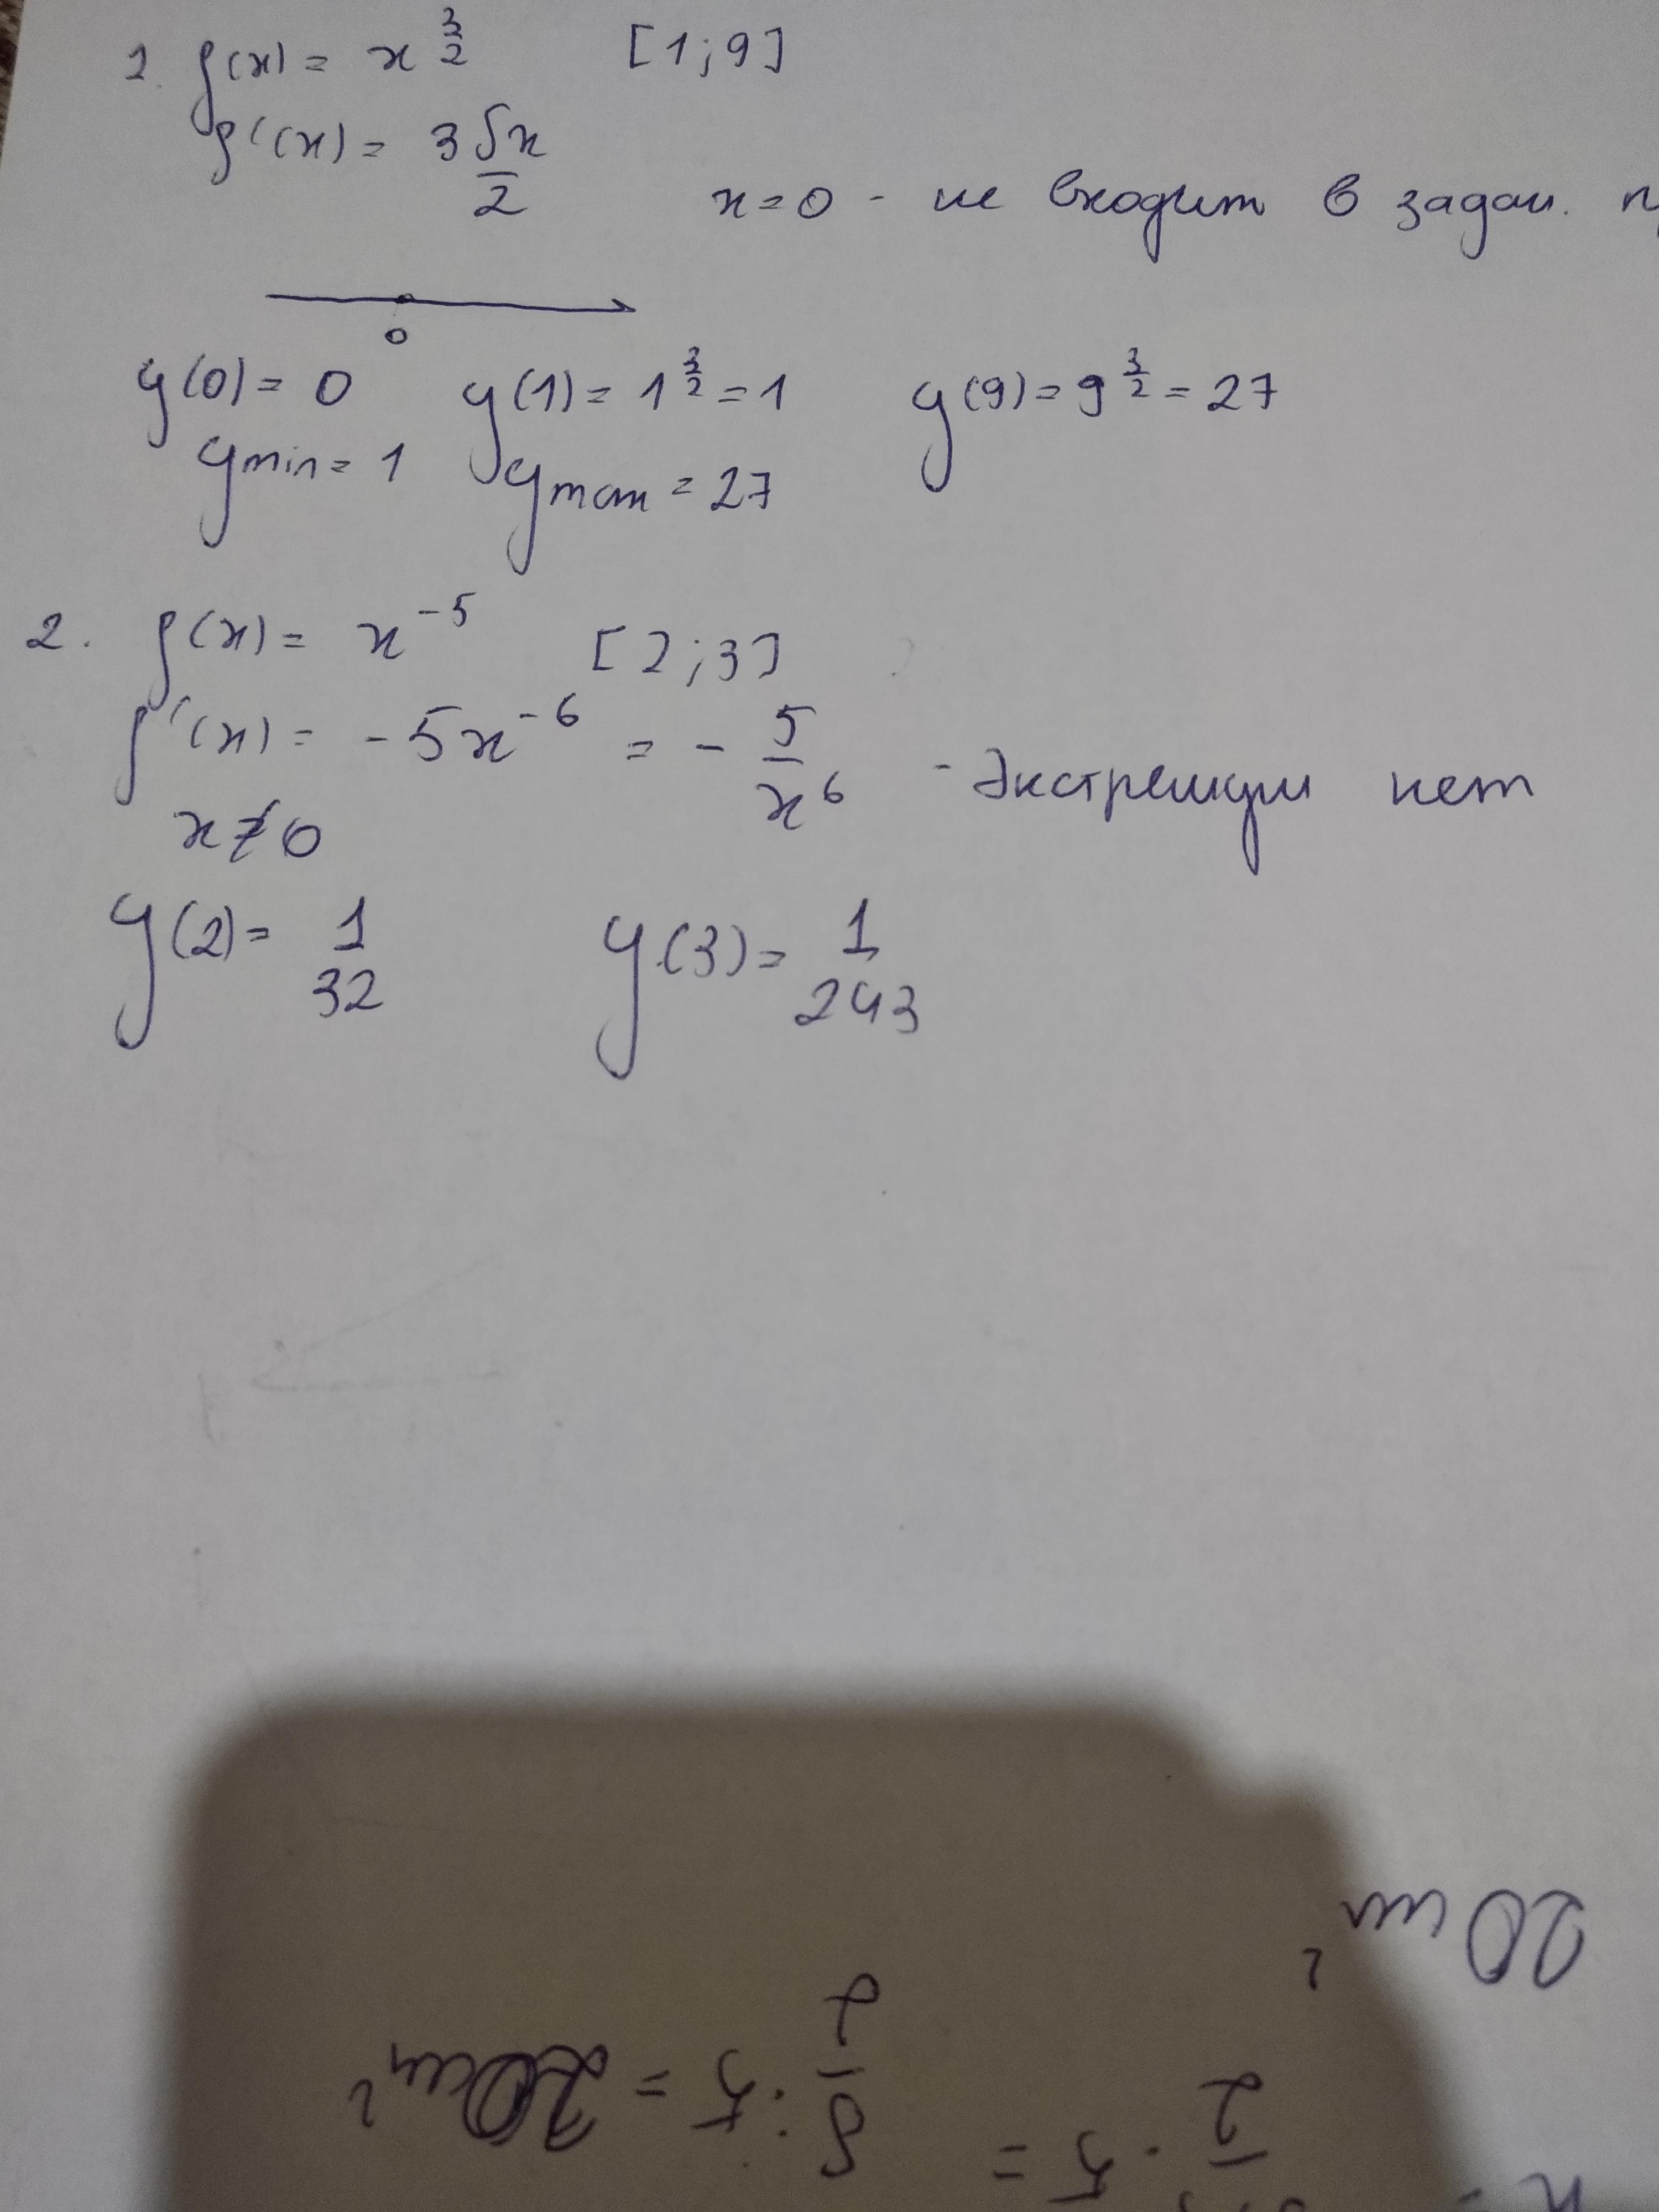 1. f(x) = x^(3/2) [1; 9]
f'(x) = 3√x/2 x=0 - не входит в задан.
0
y(0) = 0 y(1) = 1^(3/2) = 1 y(9) = 9^(3/2) = 27
ymin = 1 ymax = 27
2. f(x) = x^(-5) [2; 3]
f'(x) = -5x^(-6) = - 5/x^6 - Экстремум нет
x≠0
y(2) = 1/32 y(3) = 1/243
20 см²
8/2 · 5 = 20 см²
/2 · 5 =